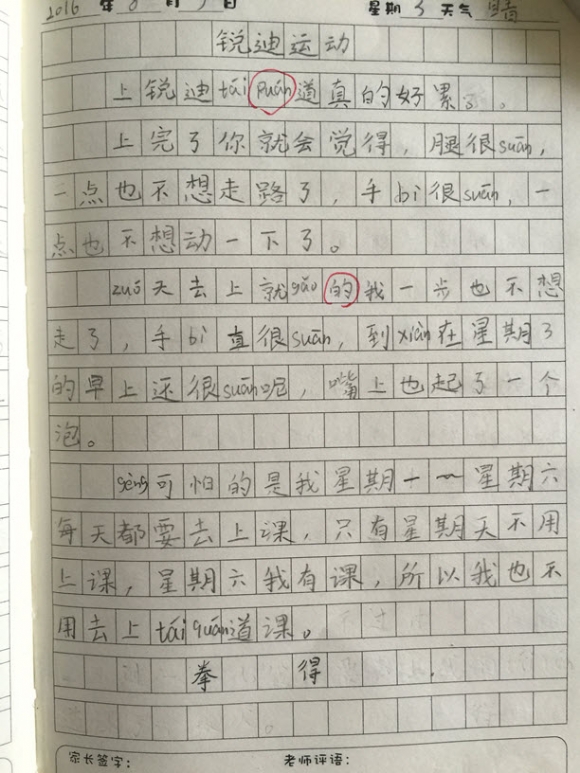 2016 年 8 月 3 日 星期 3 天气 晴
锐迪运动
上锐迪tái puán道真的好累。
上完了你就会觉得，腿很suān，
一点也不想走路了，手bì很suān，一
点也不想动一下了。
zuó天去上就gǎo的我一步也不想
走了，手bì直很suān，到xiàn在星期3
的早上还很suān呢，嘴上也起了一个
泡。
gèng可怕的是我星期一～星期六
每天都要去上课，只有星期天不用
上课，星期六我有课，所以我也不
用去上tái quán道课。
拳 得
家长签字： 老师评语：